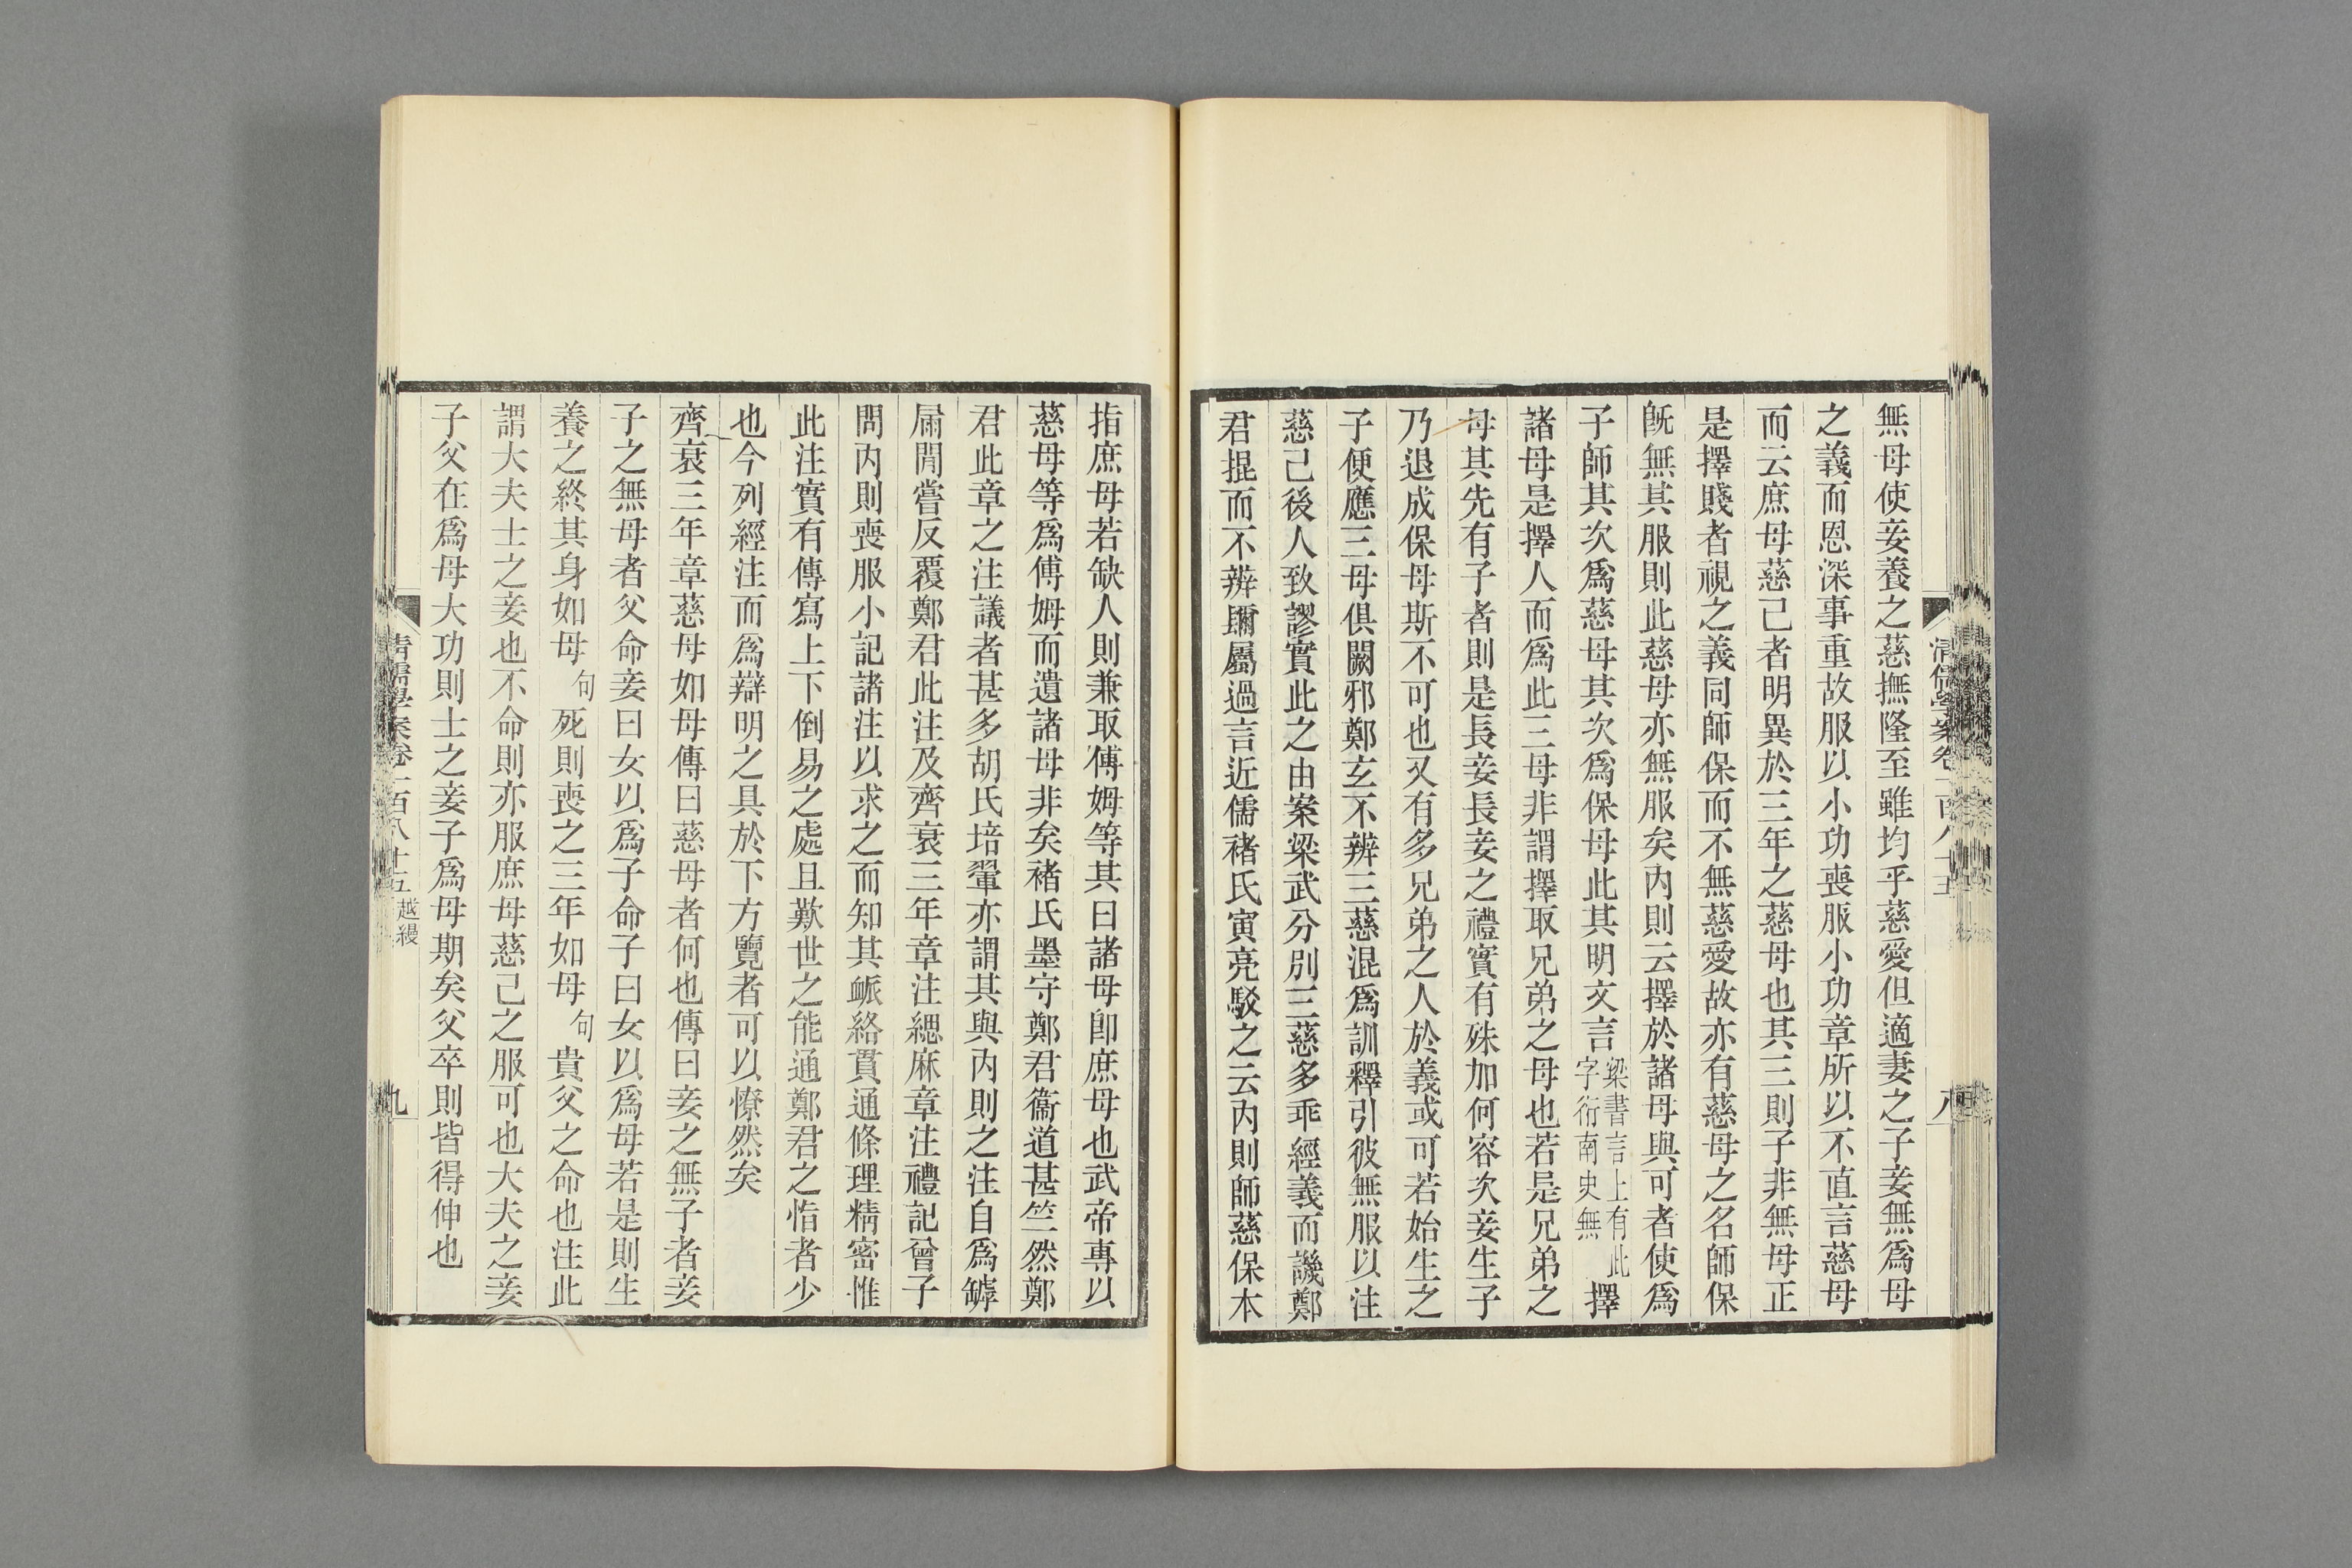 無母使妾養之慈撫隆至雖均乎慈愛但適妻之子妾無爲母
之義而恩深事重故服以小功喪服小功章所以不直言慈母
而云庶母慈己者明異於三年之慈母也其三則子非無母正
是擇賤者視之義同師保而不無慈愛故亦有慈母之名師保
旣無其服則此慈母亦無服矣內則云擇於諸母與可者使爲
子師其次爲慈母其次爲保母此其明文言梁書言上有此字衍南史無擇
諸母是擇人而爲此三母非謂擇取兄弟之母也若是兄弟之
母其先有子者則是長妾長妾之禮實有殊加何容次妾生子
乃退成保母斯不可也又有多兄弟之人於義或可若始生之
子便應三母俱闕邪鄭玄不辨三慈混爲訓釋引彼無服以注
慈己後人致謬實此之由案梁武分別三慈多乖經義而譏鄭
君掍而不辨彌屬過言近儒褚氏寅亮駁之云內則師慈保本
清儒學案卷一百八十五
八
指庶母若缺人則兼取傅姆等其曰諸母卽庶母也武帝專以
慈母等爲傅姆而遺諸母非矣褚氏墨守鄭君衞道甚竺然鄭
君此章之注議者甚多胡氏培翬亦謂其與內則之注自爲罅
屚閒嘗反覆鄭君此注及齊衰三年章注緦麻章注禮記曾子
問內則喪服小記諸注以求之而知其衇絡貫通條理精密惟
此注實有傳寫上下倒易之處且歎世之能通鄭君之恉者少
也今列經注而爲辯明之具於下方覽者可以憭然矣
齊衰三年章慈母如母傳曰慈母者何也傳曰妾之無子者妾
子之無母者父命妾曰女以爲子命子曰女以爲母若是則生
養之終其身如母句死則喪之三年如母句貴父之命也注此
謂大夫士之妾也不命則亦服庶母慈己之服可也大夫之妾
子父在爲母大功則士之妾子爲母期矣父卒則皆得伸也
清儒學案卷一百八十五 越縵
九